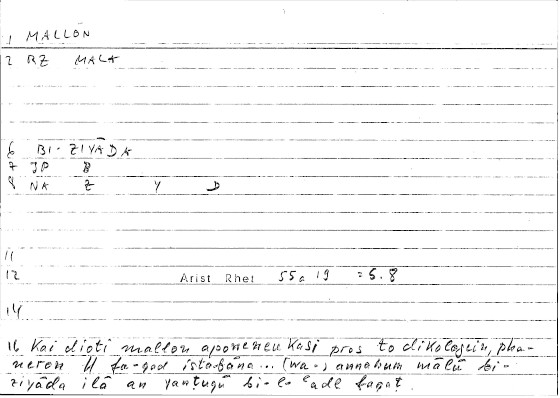 1 MALLON
2 RZ MALA
6 BI-ZIYĀDA
7 JP B
8 NA Z Y D
11
12 Arist Rhet 55a 19 = 5.8
14
16 Kai dioti mallon aponeneukasi pros to dikologein, pha-
neron // fa-qad istabāna... (wa-) annahum mālū bi-
ziyāda ilā an yantuqū bi-l- 'adl faqat.